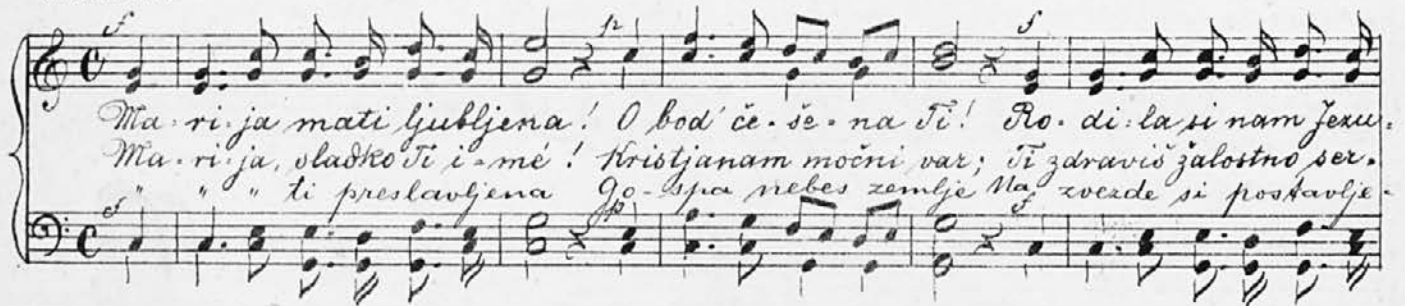 f p f
Ma-ri-ja mati ljubljena! O bod' če-še-na Ti! Ro-di-la si nam Jezu-
Ma-ri-ja, sladko Ti i-mé! Kristjanam močni var; Ti zdraviš žalostno ser-
" " " ti preslavljena Go-spa nebes zemlje Na zvezde si postavlje-
f p f